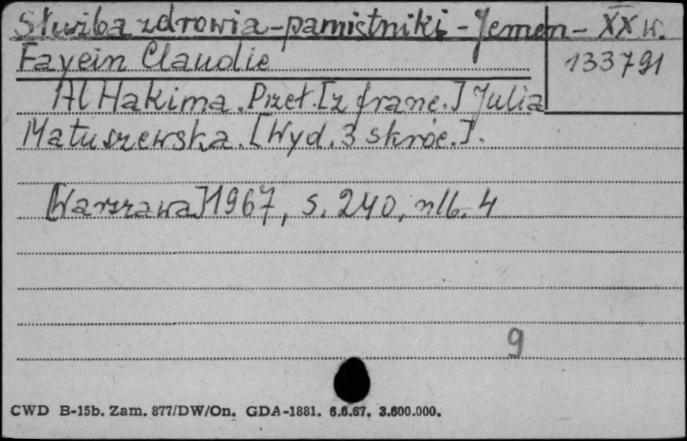 Służba zdrowia - pamiętniki - Jemen - XX w.
Fayein Claudie
133791
Al Hakima. Przeł. [z franc.] Julia
Matuszewska. [Wyd. 3 skróc.].
[Warszawa] 1967, s. 240, nlb. 4
9
CWD B-15b. Zam. 877/DW/On. GDA-1881. 6.6.67. 3.600.000.